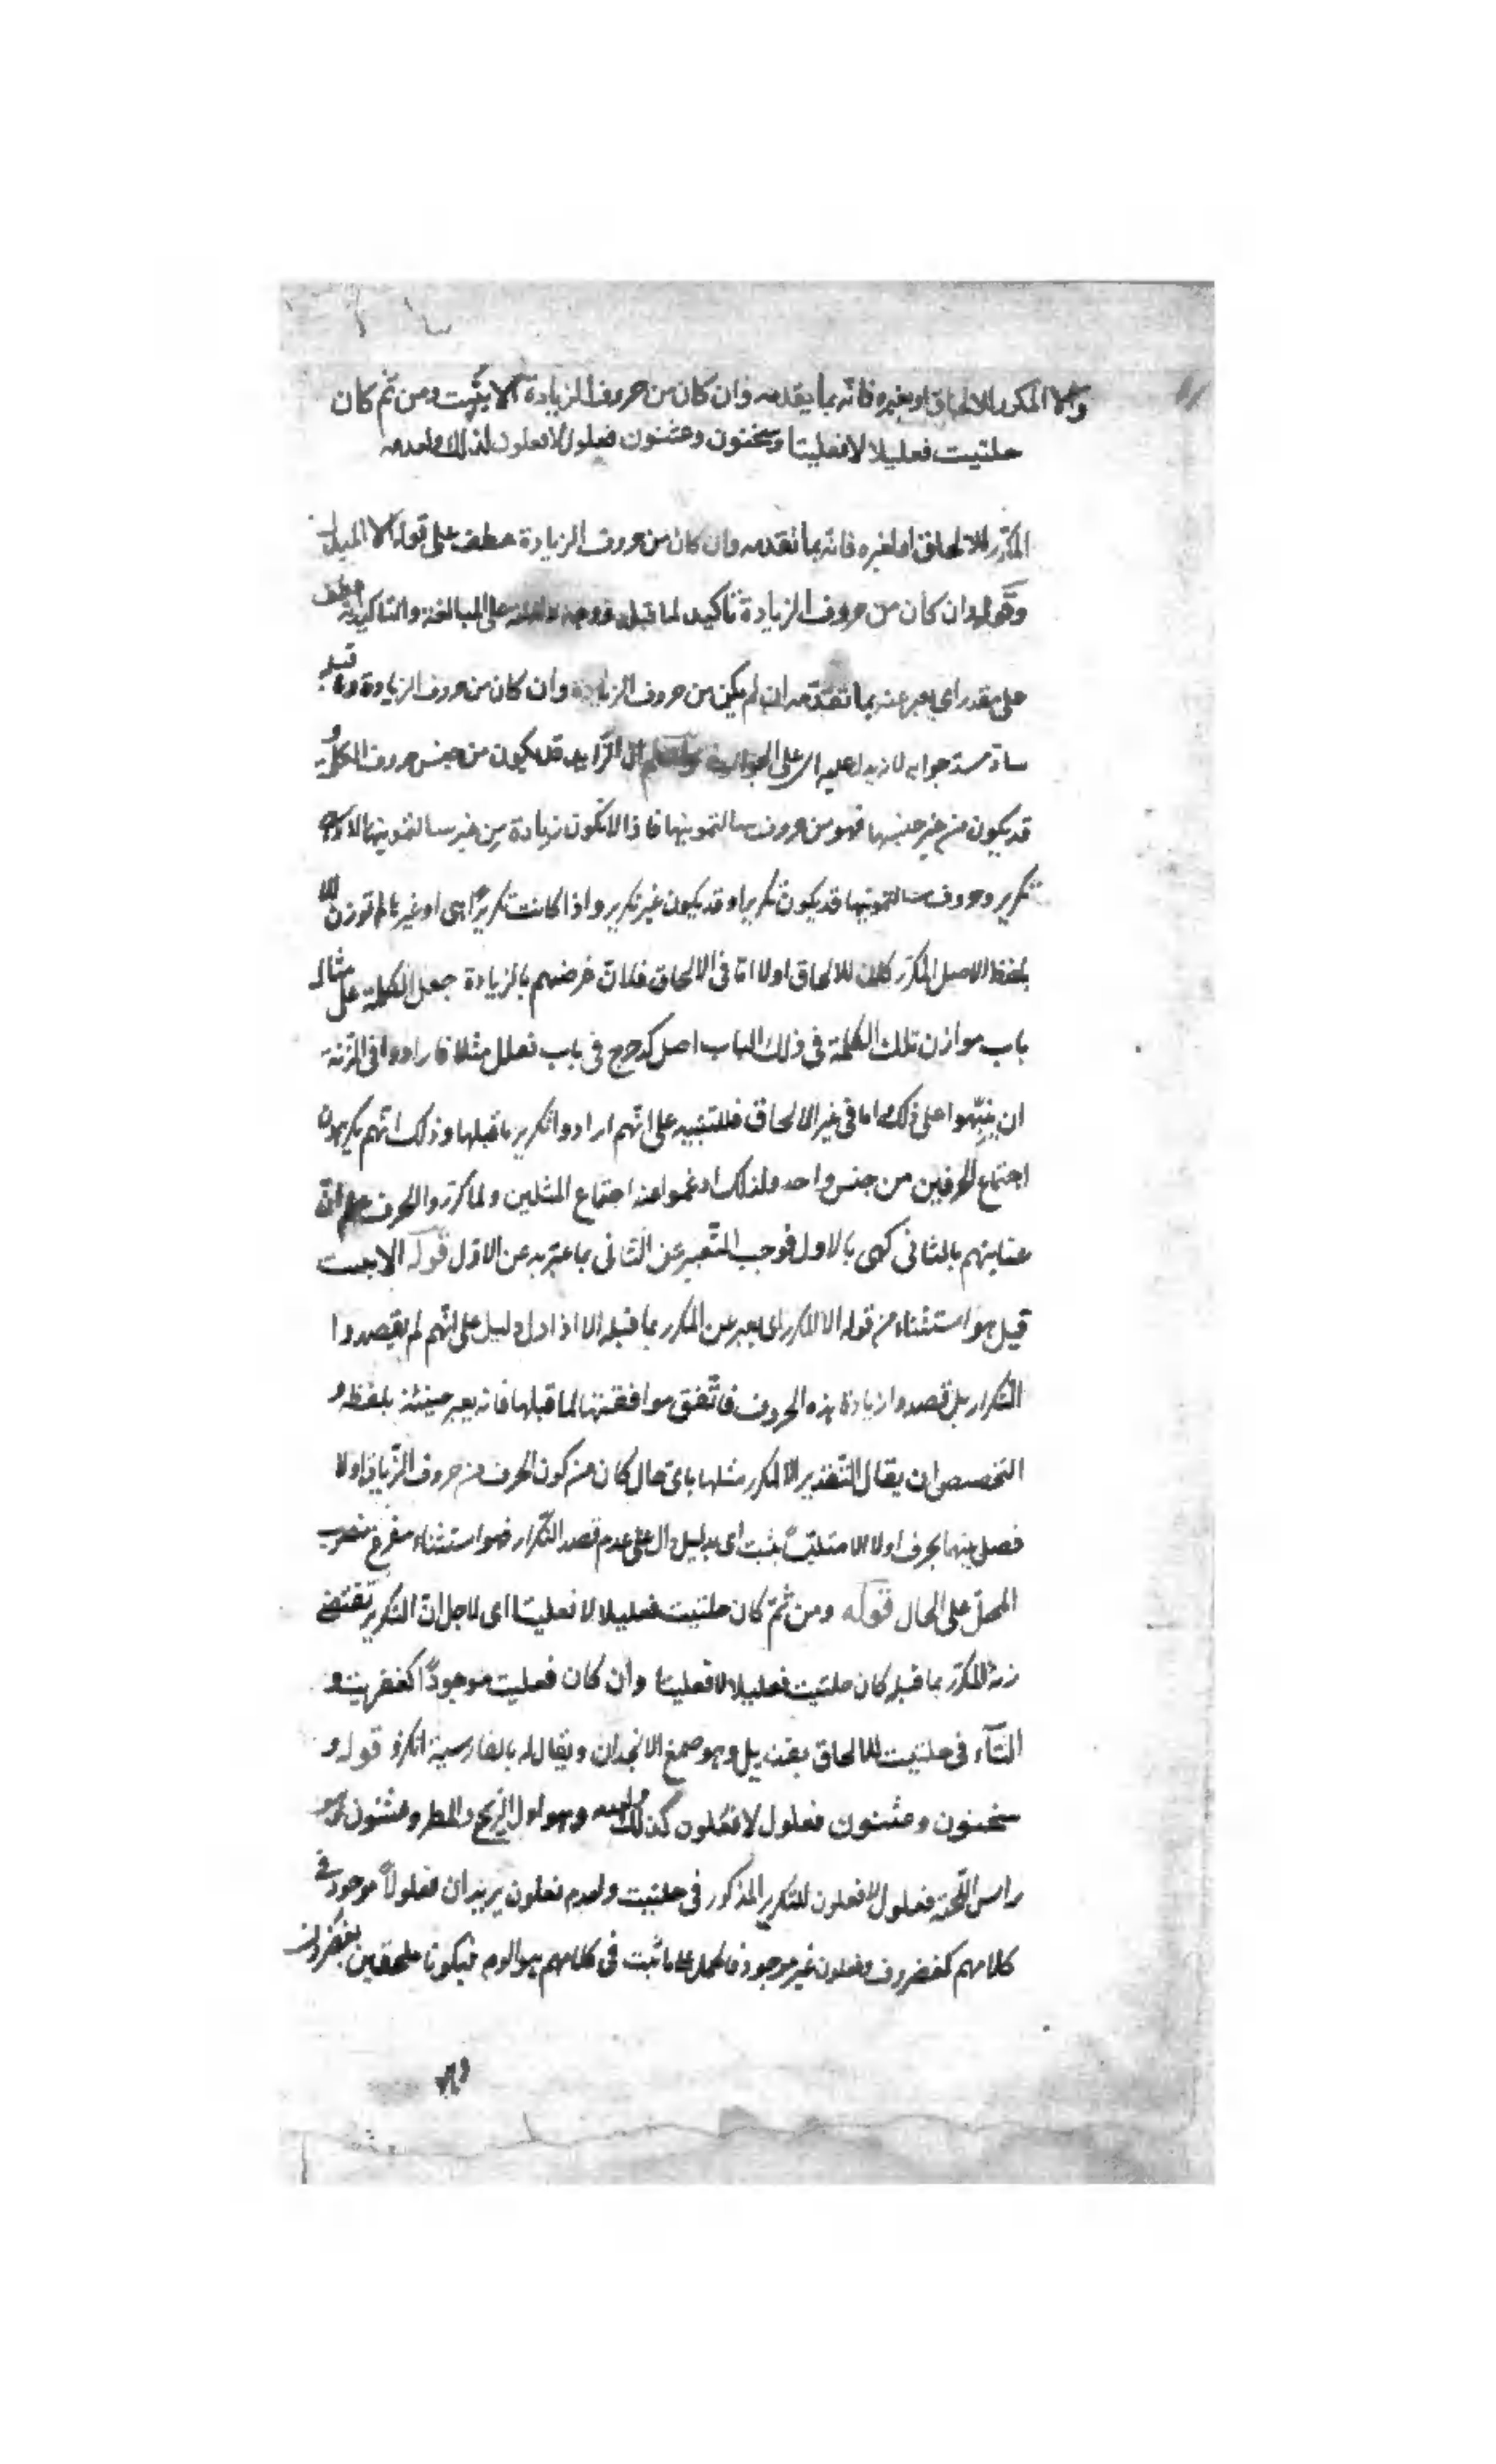 والا المكرر للالحاق او لغيره فانه بما تقدمه وان كان من حروف الزيادة الا بثبت ومن ثم كان
حلتيت فعليلا لا فعليتا وسحنون وعثنون فعلول لا فعلون لذلك ولعدمه
المكرر للالحاق او لغيره فانه بما تقدمه وان كان من حروف الزيادة عطف على قوله الا المبدل
وقوله وان كان من حروف الزيادة تاكيد لما قبله على المبالغة والتاكيد عطف
على مقدر اى يعبر عنه بما تقدمه ان لم يكن من حروف الزيادة وان كان من حروف الزيادة
الزايد قد يكون من جنس حروف الكلمة و
قد يكون من غير جنسها فهو من حروف سالتمونيها فاذا لا تكون زيادة من غير سالتمونيها الا وهى
تكرير وحروف سالتمونيها قد يكون تكريرا وقد يكون غير تكرير واذا كانت تكريرا هى او غيرها لم توزن الا
بلفظ الاصل المكرر كان للالحاق اولا اما فى الالحاق فلان غرضهم بالزيادة جعل الكلمة على مثال
باب موازن تلك الكلمة فى ذلك الباب اصل كدحرج فى باب فعلل مثلا فارادوا فى الزنة
ان ينبهوا على ذلك واما فى غير الالحاق فللتنبيه على انهم ارادوا تكرير ما قبلها وذلك انهم يكرهون
اجتماع الحرفين من جنس واحد ولذلك ادغموا عند اجتماع المثلين ولما كرروا الحرف علم ان
عنايتهم بالثانى كهى بالاول فوجب التعبير عن الثانى بما عبر به عن الاول قوله الا بثبت
قيل هو استثناء من قوله الا المكرر اى يعبر عن المكرر بما قبله الا اذا دل دليل على انهم لم يقصدوا
التكرار بل قصدوا زيادة هذه الحروف فاتفق موافقتها لما قبلها فانه يعبر حينئذ بلفظه و
التخصيص ان يقال التقدير الا المكرر مثلها باى حال كان من كون الحرف من حروف الزيادة اولا
فصل بينهما بحرف اولا الا متلبسا بثبت اى بدليل دال على عدم قصد التكرار فهو استثناء مفرغ منصوب
المحل على الحال قوله ومن ثم كان حلتيت فعليلا لا فعليتا اى لاجل ان التكرير تقتضى
زنة المكرر بما قبله كان حلتيت فعليلا لا فعليتا وان كان فعليت موجودا كعفريت و
التاء فى حلتيت للالحاق بقنديل وهو صمغ الانجدان ويقال له بالفارسية انكزد قوله و
سحنون وعثنون فعلول لا فعلون كذلك ولعدمه وهو اول الريح والمطر وعثنون
راس اللحية فعلول لا فعلون للتكرير المذكور فى حلتيت ولعدم فعلون يريد ان فعلولا موجود فى
كلامهم كغضروف وفعلون غير موجود فالحمل على ما ثبت فى كلامهم هو الوجه فيكونا ملحقين بغضروف